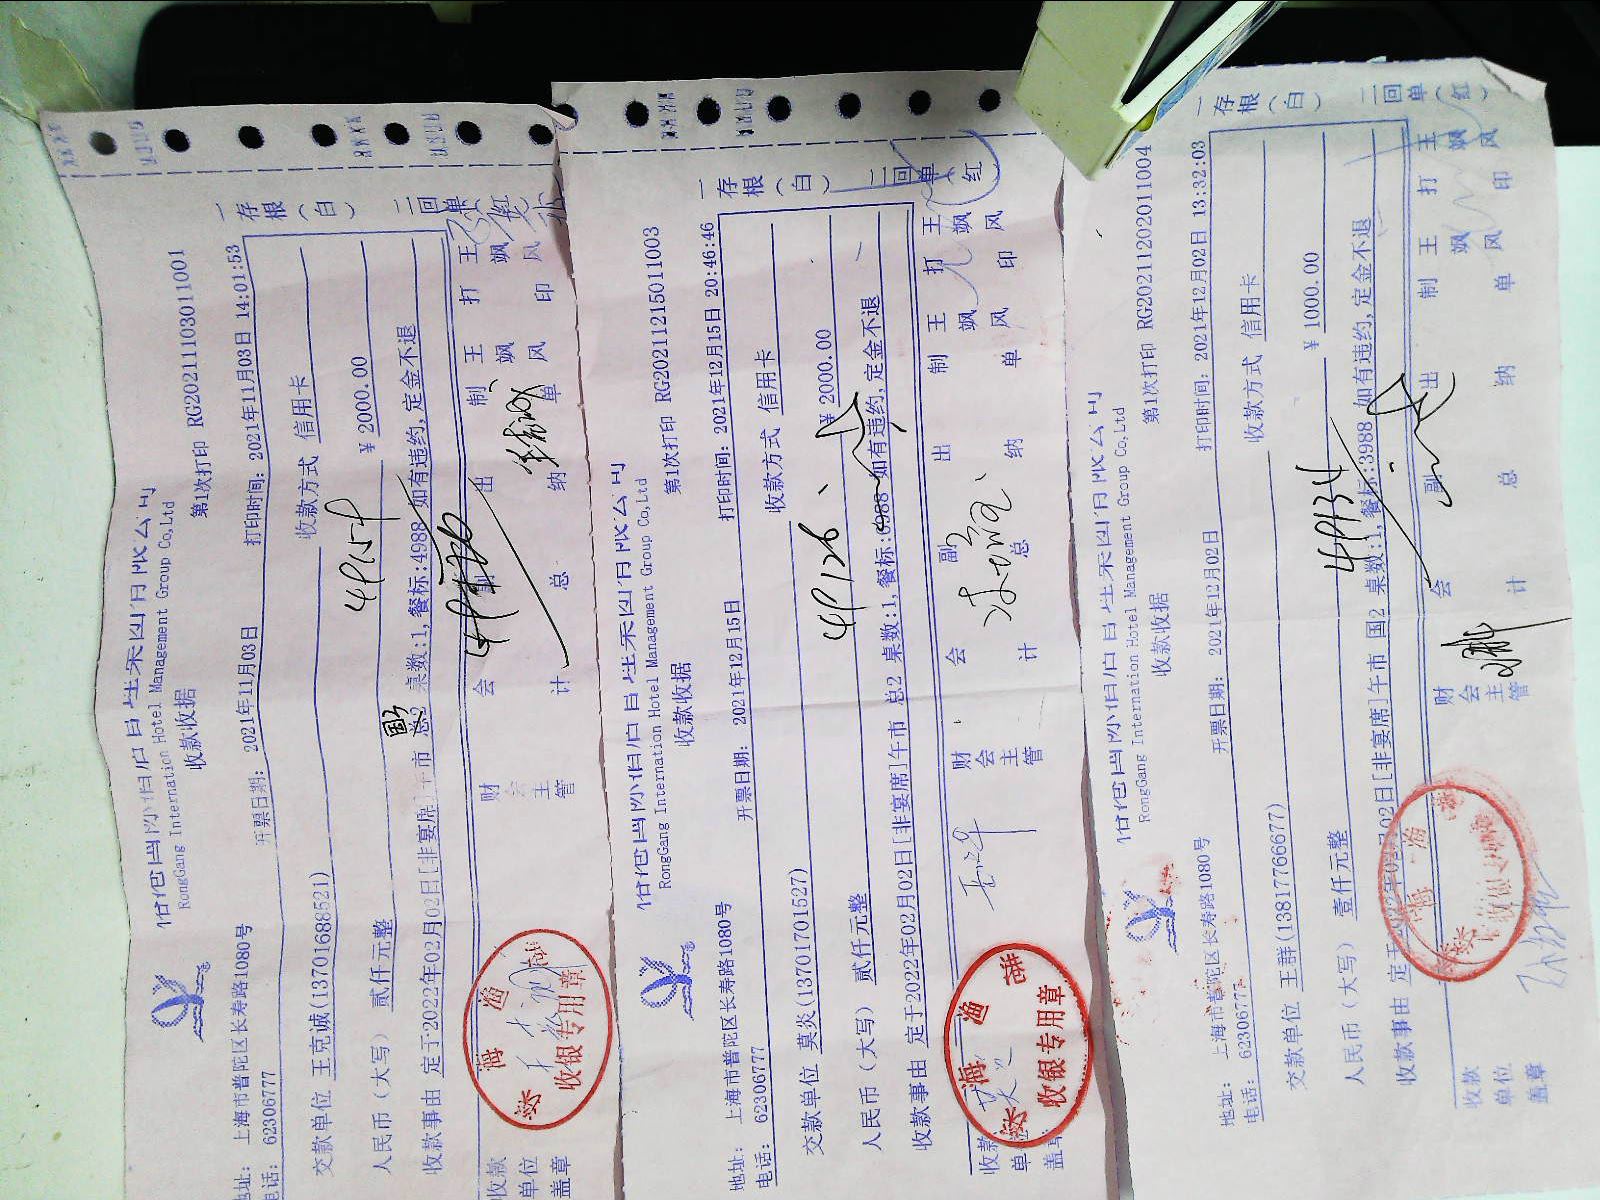 RongGang International Hotel Management Group Co,Ltd
收款收据
第1次打印 RG20211103011001
地址: 上海市普陀区长寿路1080号
电话: 62306777
开票日期: 2021年11月03日
打印时间: 2021年11月03日 14:01:53
交款单位 王克诚(13701688521)
收款方式 信用卡
人民币（大写） 贰仟元整
4P15中
¥ 2000.00
收款事由 定于2022年02月02日[非宴席]午市 总2 桌数:1,餐标:4988 如有违约,定金不退
收款单位盖章
财会主管
会计
副总
出纳
制单 王飒风
打印 王飒风
收银专用章
一存根（白）
二回单（红）
RongGang International Hotel Management Group Co,Ltd
收款收据
第1次打印 RG20211215011003
地址: 上海市普陀区长寿路1080号
电话: 62306777
开票日期: 2021年12月15日
打印时间: 2021年12月15日 20:46:46
交款单位 莫炎(13701701527)
收款方式 信用卡
人民币（大写） 贰仟元整
4P126
¥ 2000.00
收款事由 定于2022年02月02日[非宴席]午市 总2 桌数:1,餐标:6988 如有违约,定金不退
收款单位盖章
财会主管
会计
副总
出纳
制单 王飒风
打印 王飒风
收银专用章
一存根（白）
二回单（红）
RongGang International Hotel Management Group Co,Ltd
收款收据
第1次打印 RG20211202011004
地址: 上海市普陀区长寿路1080号
电话: 62306777
开票日期: 2021年12月02日
打印时间: 2021年12月02日 13:32:03
交款单位 王静(13817766677)
收款方式 信用卡
人民币（大写） 壹仟元整
4P134
¥ 1000.00
收款事由 定于2022年02月02日[非宴席]午市 国2 桌数:1,餐标:3988 如有违约,定金不退
收款单位盖章
财会主管
会计
副总
出纳
制单 王飒风
打印 王飒风
一存根（白）
二回单（红）